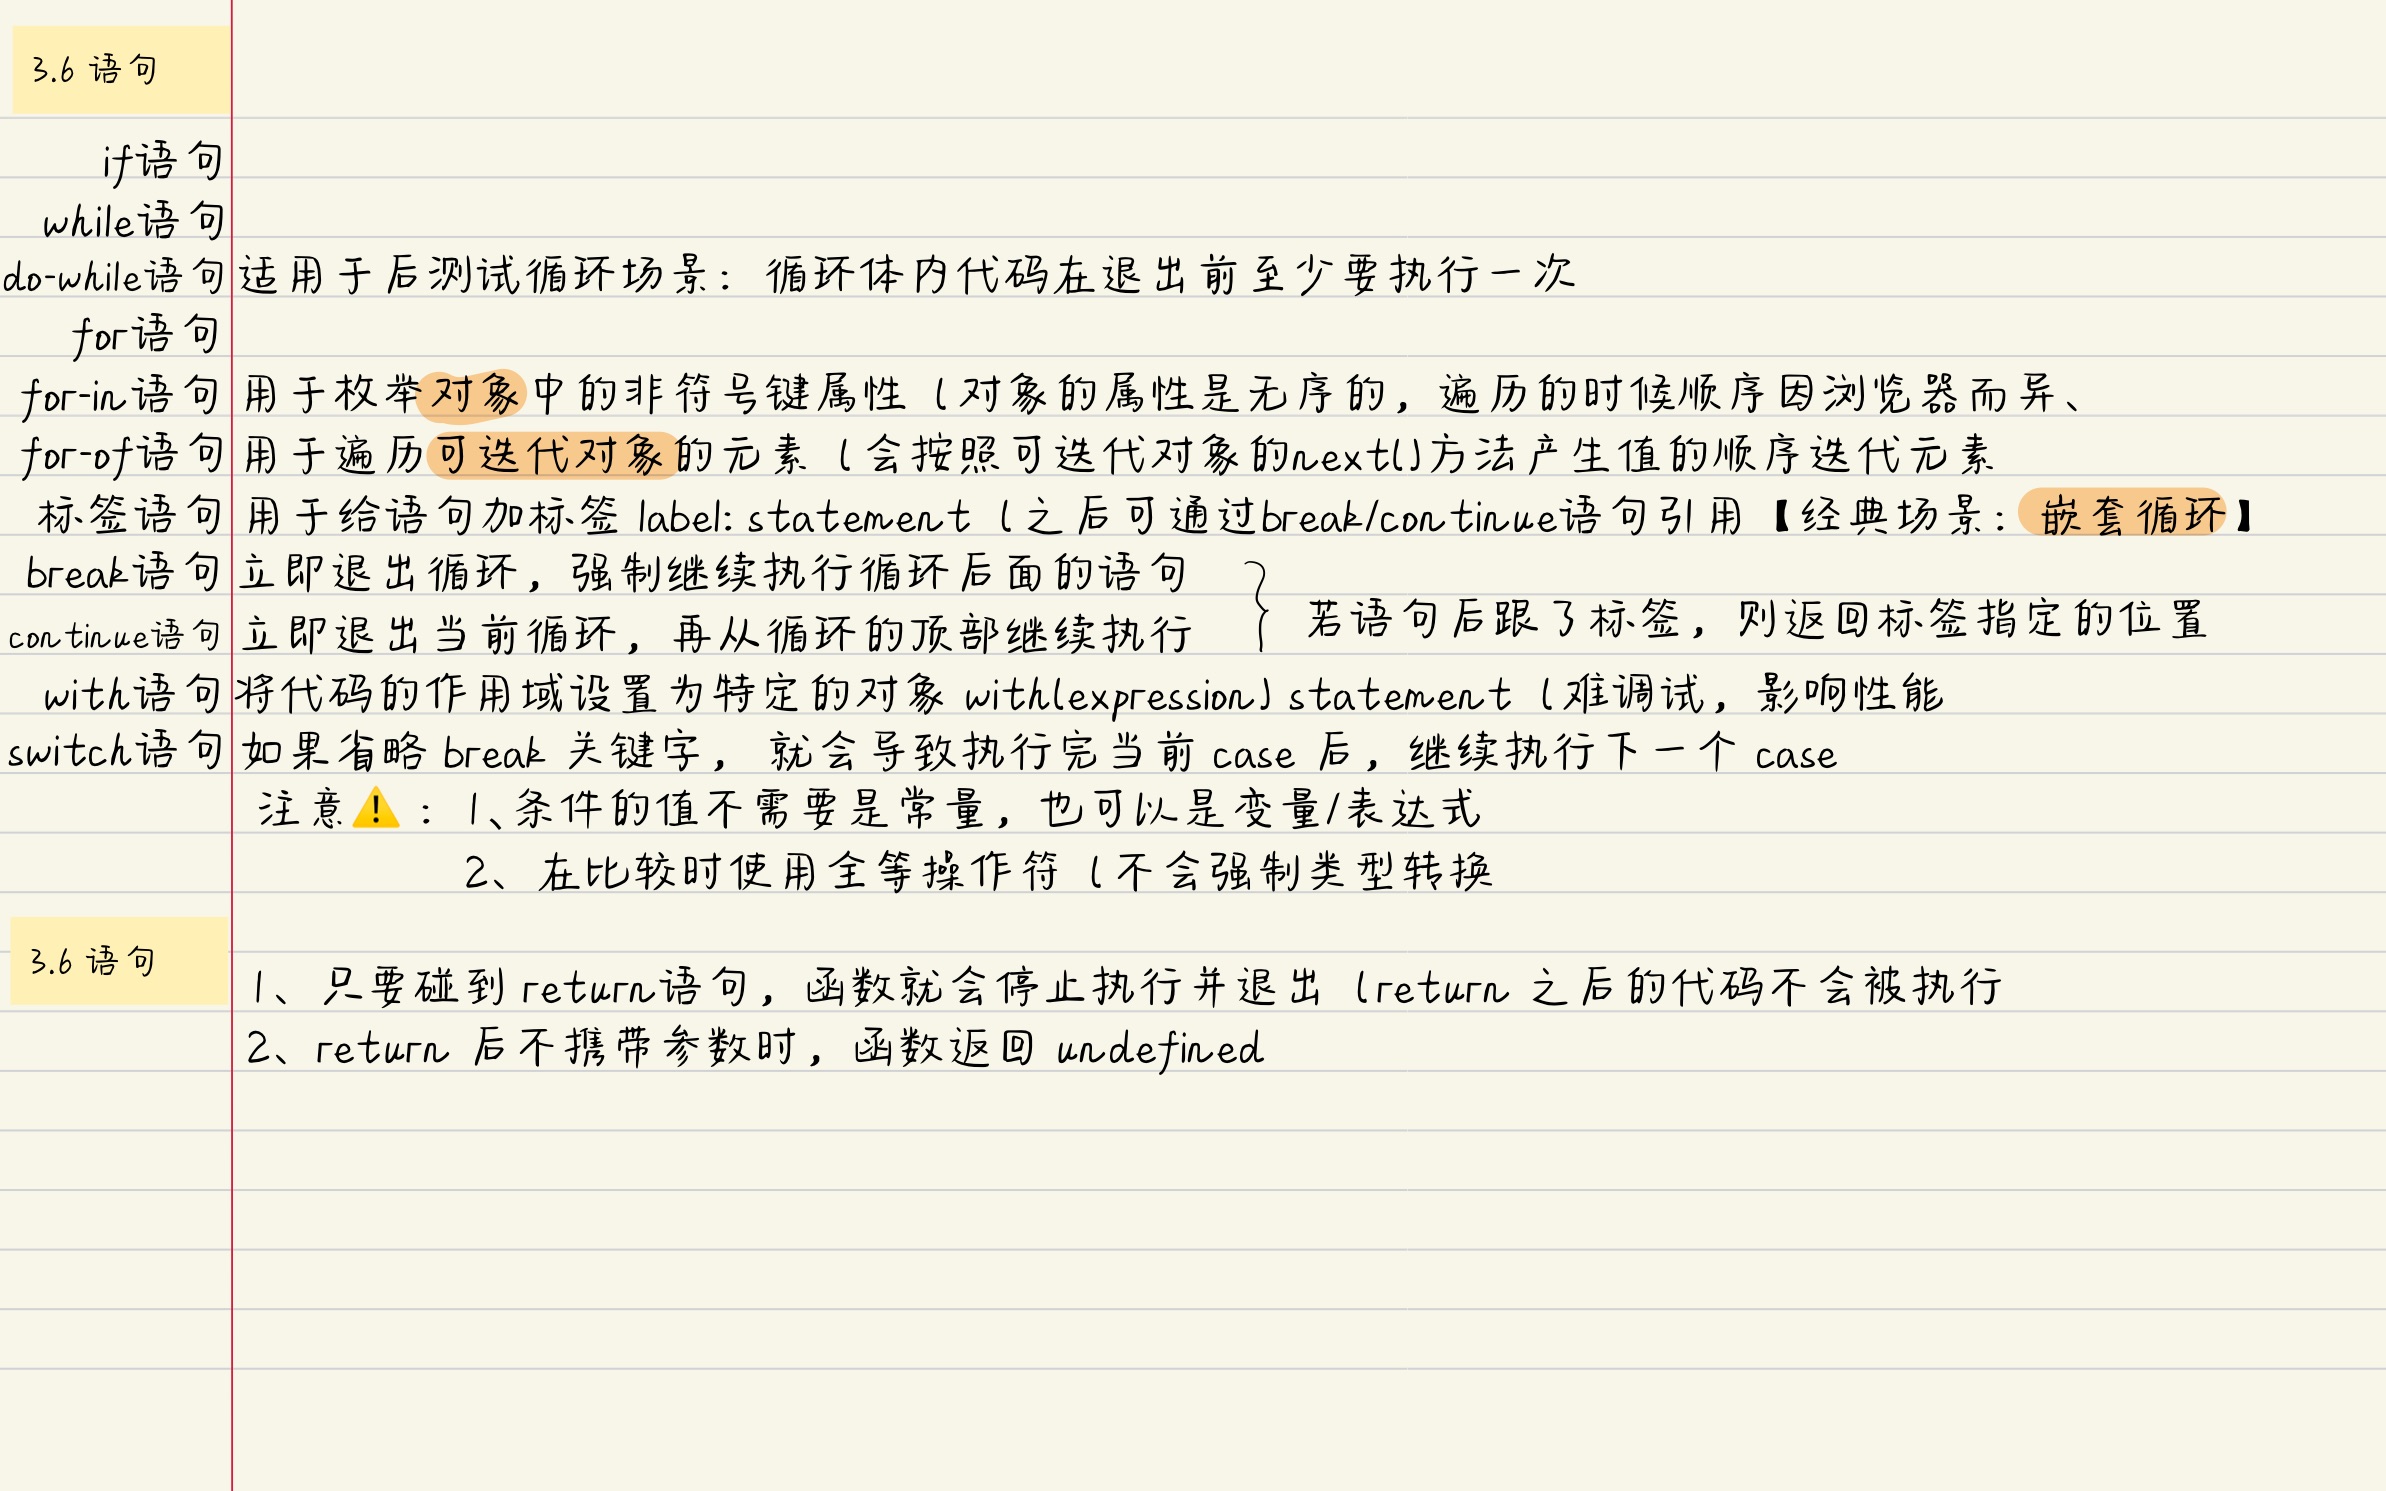 3.6 语句
if语句
while语句
do-while语句 适用于后测试循环场景：循环体内代码在退出前至少要执行一次
for语句
for-in语句 用于枚举对象中的非符号键属性（对象的属性是无序的，遍历的时候顺序因浏览器而异、
for-of语句 用于遍历可迭代对象的元素（会按照可迭代对象的next()方法产生值的顺序迭代元素
标签语句 用于给语句加标签 label: statement（之后可通过break/continue语句引用【经典场景：嵌套循环】
break语句 立即退出循环，强制继续执行循环后面的语句
若语句后跟了标签，则返回标签指定的位置
continue语句 立即退出当前循环，再从循环的顶部继续执行
with语句 将代码的作用域设置为特定的对象 with(expression) statement（难调试，影响性能
switch语句 如果省略 break 关键字，就会导致执行完当前 case 后，继续执行下一个 case
注意⚠️：1、条件的值不需要是常量，也可以是变量/表达式
2、在比较时使用全等操作符（不会强制类型转换
3.6 语句
1、只要碰到 return语句，函数就会停止执行并退出（return 之后的代码不会被执行
2、return 后不携带参数时，函数返回 undefined